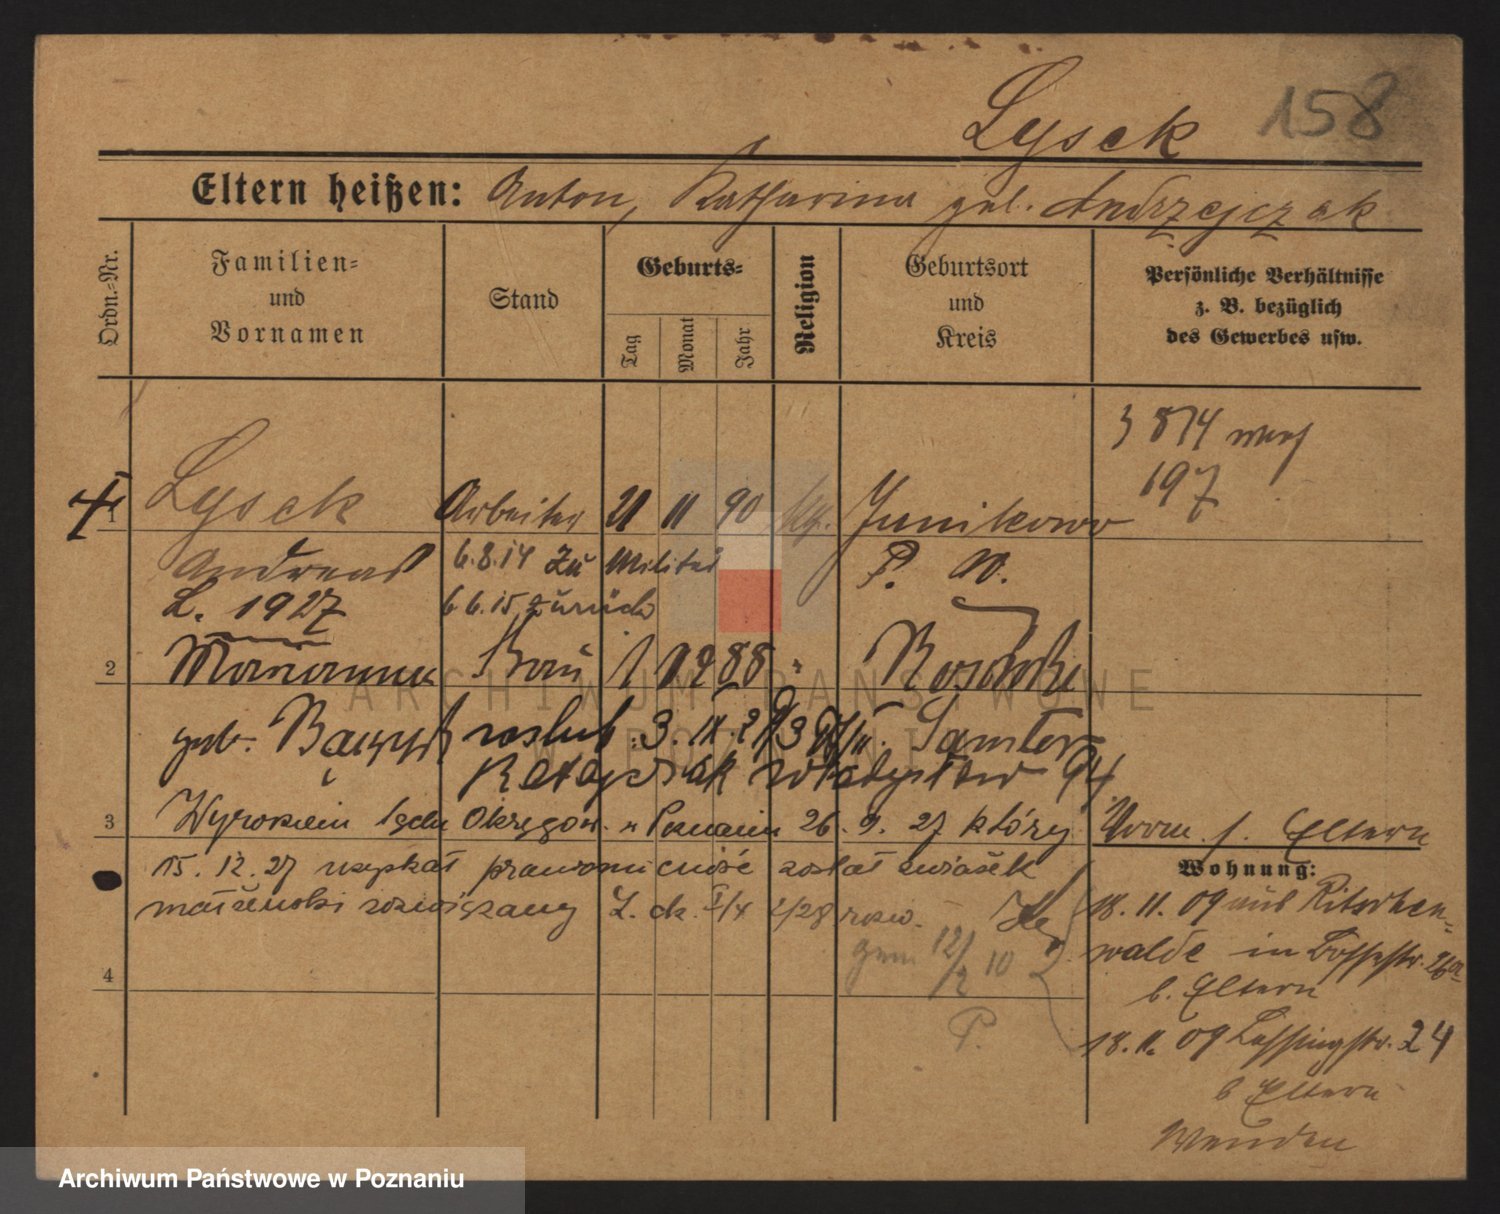 Lysek 158
Eltern heißen: Anton, Katharina geb. Andrzejczak
Ordn.-Nr.
Familien-
und
Vornamen
Stand
Geburts-
Tag
Monat
Jahr
Religion
Geburtsort
und
Kreis
Persönliche Verhältnisse
z. B. bezüglich
des Gewerbes usw.
3 874
197
1 Lysek Arbeiter 21 11 90 Junikowo
Andreas 6.8.14 zu Militär P. W.
L. 1927 6.6.15 zurück
2 Marianna Frau 1 12 88
geb. roslub. 3. Samter
Ratajczak Władysław 94
3 Wyrokiem Sądu Okręgow. w Poznaniu 26. 9. 27 który
15. 12. 27 uzyskał prawomocność został związek
małżeński rozwiązany L. dz. I/4 2/28 rozw.
Vorm. s. Eltern
Wohnung:
18. 11. 09 aus Ritschen-
walde in
b. Eltern
18. 11. 09 Lessingstr. 24
b Eltern
Wenden
gem 12/2 10
4
P.
ARCHIWUM PAŃSTWOWE
W POZNANIU
Archiwum Państwowe w Poznaniu